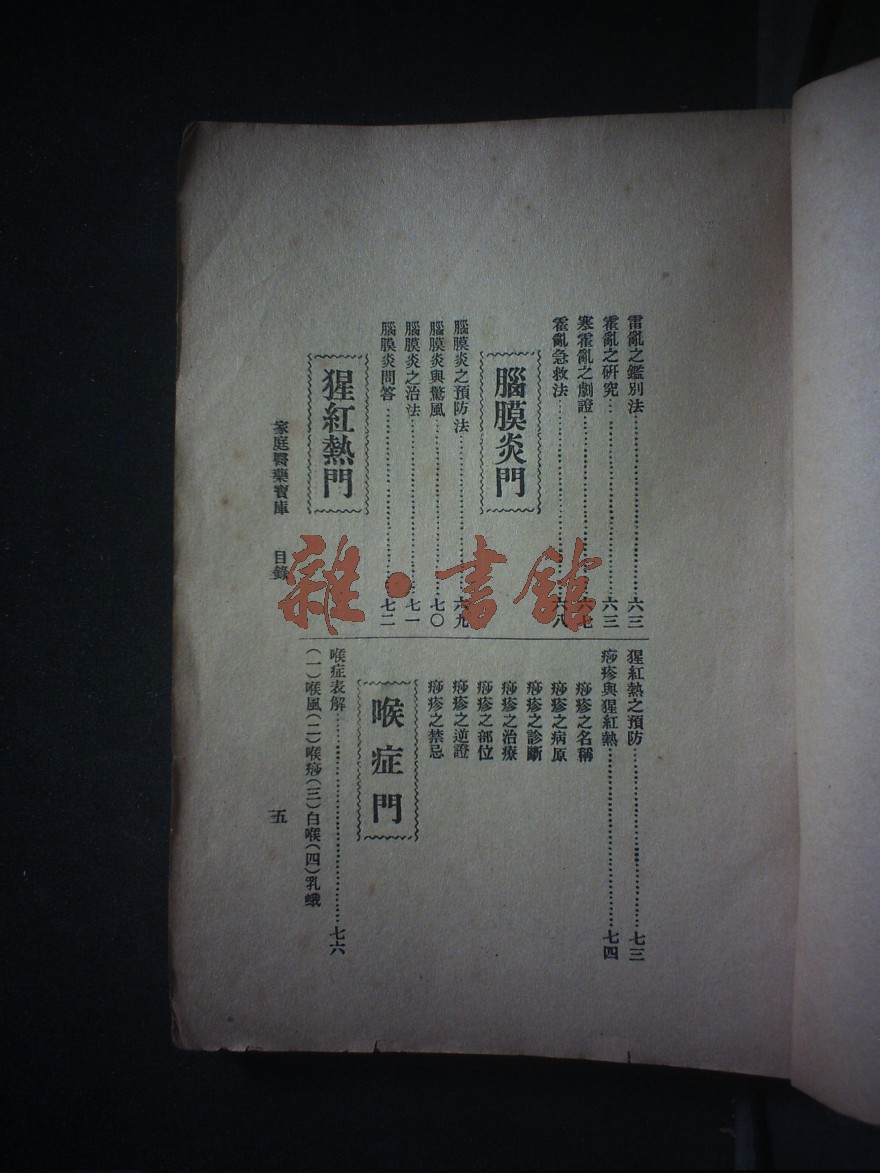 霍亂之鑑別法……六三
霍亂之研究……六三
寒霍亂之劇證……六七
霍亂急救法……六八
腦膜炎門
腦膜炎之預防法……六九
腦膜炎與驚風……七〇
腦膜炎之治法……七一
腦膜炎問答……七二
猩紅熱門
猩紅熱之預防……七三
痧疹與猩紅熱……七四
痧疹之名稱
痧疹之病原
痧疹之診斷
痧疹之治療
痧疹之部位
痧疹之逆證
痧疹之禁忌
喉症門
喉症表解……七六
(一)喉風(二)喉痧(三)白喉(四)乳蛾
家庭醫藥寶庫 目錄 五
雜·書館